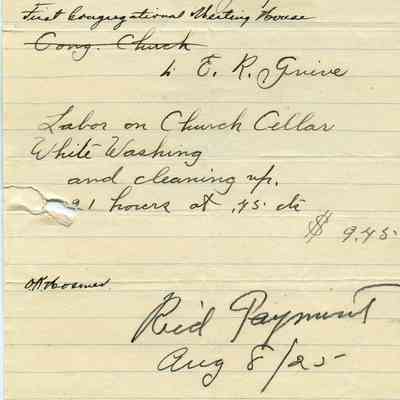 First Congregational Meeting House
Cong. Church
to E. R. Grieve
Labor on Church Cellar
White Washing
and cleaning up.
21 hours at .45 cts
$ 9.45
OK Hosmer
Rec'd Payment
Aug 8/25